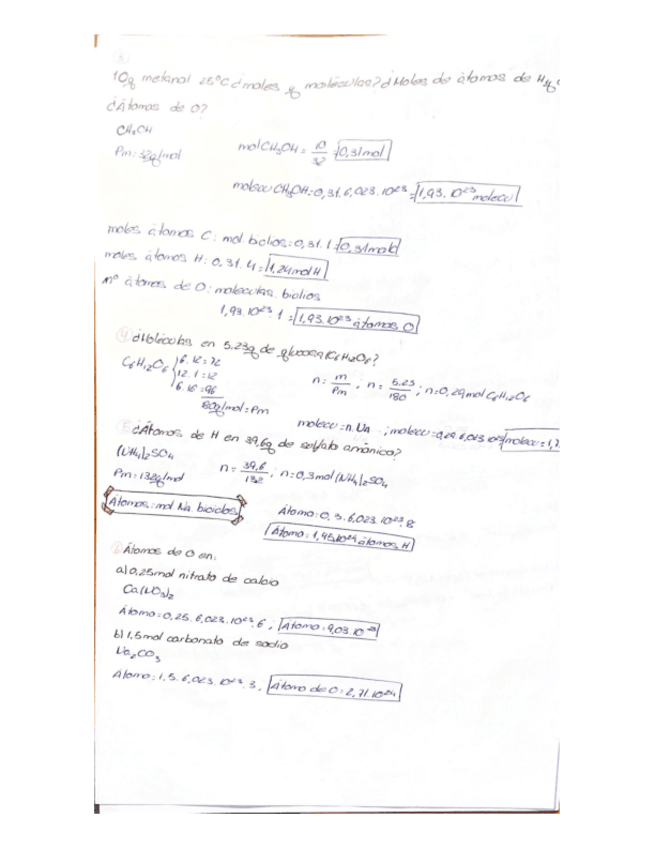 3
10g metanol 25°C ¿moles y moléculas? ¿Moles de átomos de H y
¿Átomos de O?
CH3OH
Pm=32g/mol
mol CH3OH = 10/32 = 0,31mol
molecu CH3OH=0,31.6,023.10^23 = 1,93.10^23 molecu
moles átomos C: mol
0,31.1= 0,31molC
moles átomos H: 0,31.4= 1,24molH
nº átomos de O: moléculas.
1,93.10^23.1= 1,93.10^23 átomos O
4 ¿Moléculas en 5.23g de glucosa (C6H12O6?
C6H12O6 { 6.12=72
12.1=12
6.16=96
180g/mol=Pm
n= m/Pm ; n= 5.23/180 ; n=0,29mol C6H12O6
molecu=n.Na ; molecu=0,29.6,023.10^23 molecu=1,7
5 ¿Átomos de H en 39,6g de sulfato amónico?
(NH4)2SO4
Pm=132g/mol
n= 39,6/132 ; n=0,3mol (NH4)2SO4
Átomos=mol Na.
Átomo: 0,3.6,023.10^23.8
Átomo: 1,45.10^24 átomos H
6 Átomos de O en:
a) 0,25mol nitrato de calcio
Ca(NO3)2
Átomo=0,25.6,023.10^23.6 ; Átomo=9,03.10^23
b) 1,5mol carbonato de sodio
Na2CO3
Átomo=1,5.6,023.10^23.3, Átomo de O=2,71.10^24